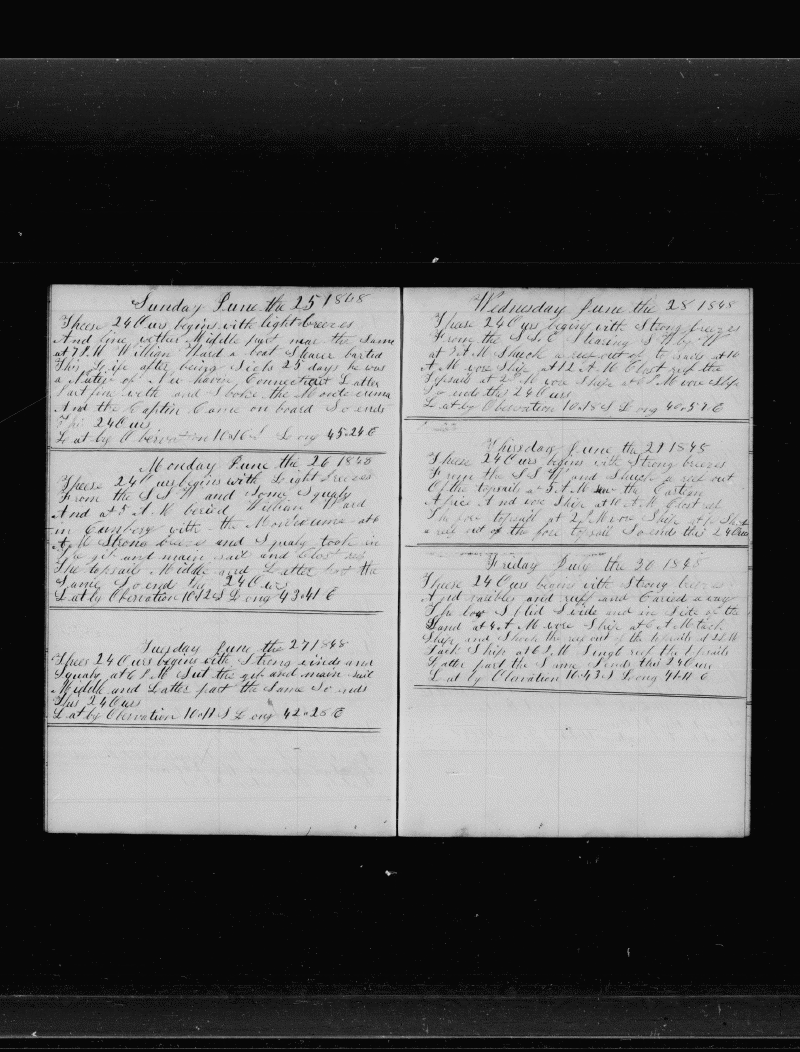 Sunday June the 25 1848
Theese 24 Ours begins with light breezes
And fine wether Middle part near the Same
at 7 P.M William Ward a boat Stearer parted
This Life after being Sick 25 days he was
a Native of New haven Connecticut Latter
Part fine with and Spoke the Montezuma
And the Captin Came on board So ends
This 24 Ours
Lat by Observation 10.16 S Long 45.24 E
Monday June the 26 1848
Theese 24 Ours begins with Light breezes
From the S S W and Some Squals
And at 5 A M beried William Ward
in Company with the Montezuma at 6
A M Strong breeze and Squaly took in
The gib and main sail and Clos reef
The topsails Middle and Latter part the
Same So end this 24 Ours
Lat by Observation 10.12 S Long 43.41 E
Tuesday June the 27 1848
Thees 24 Ours begins with Strong winds and
Squaly at 6 P M Sut the gib and main sail
Middle and Latter part the Same So ends
This 24 Ours
Lat by Observation 10.11 S Long 42.28 E
Wednesday June the 28 1848
These 24 Ours begins with Strong breezes
From the S.S.E Stearing S W by W
at 7 A M Shuck a reef out of topsails at 10
A M wore Ship at 12 A M Clost reef the
Topsail at 2 P M wore Ship at 6 P M wore Ship
So ends this 24 Ours
Lat by Observation 10.18 S Long 40.57 E
Thirsday June the 29 1848
Theese 24 Ours begins with Strong breezes
From the S S W and Shuck a reef out
Of the topsails at 5 A M Saw the Eastern
Africa And wore Ship at 10 A M Clost reef
The fore topsail at 2 P M wore Ship at 6 Shook
a reef out of the fore topsail So ends this 24 Ours
Friday July the 30 1848
Theese 24 Ours begins with Strong breezes
And and ruff and Caried away
The bow Split Side and in Site of the
Land at 4 A M wore Ship at 6 A M tack
Ship and Shook the reef out of the topsails at 2 P M
Tack Ship at 6 P M Singl reef the topsails
Latter part the Same So ends this 24 Ours
Lat by Observation 10.43 S Long 41.11 E